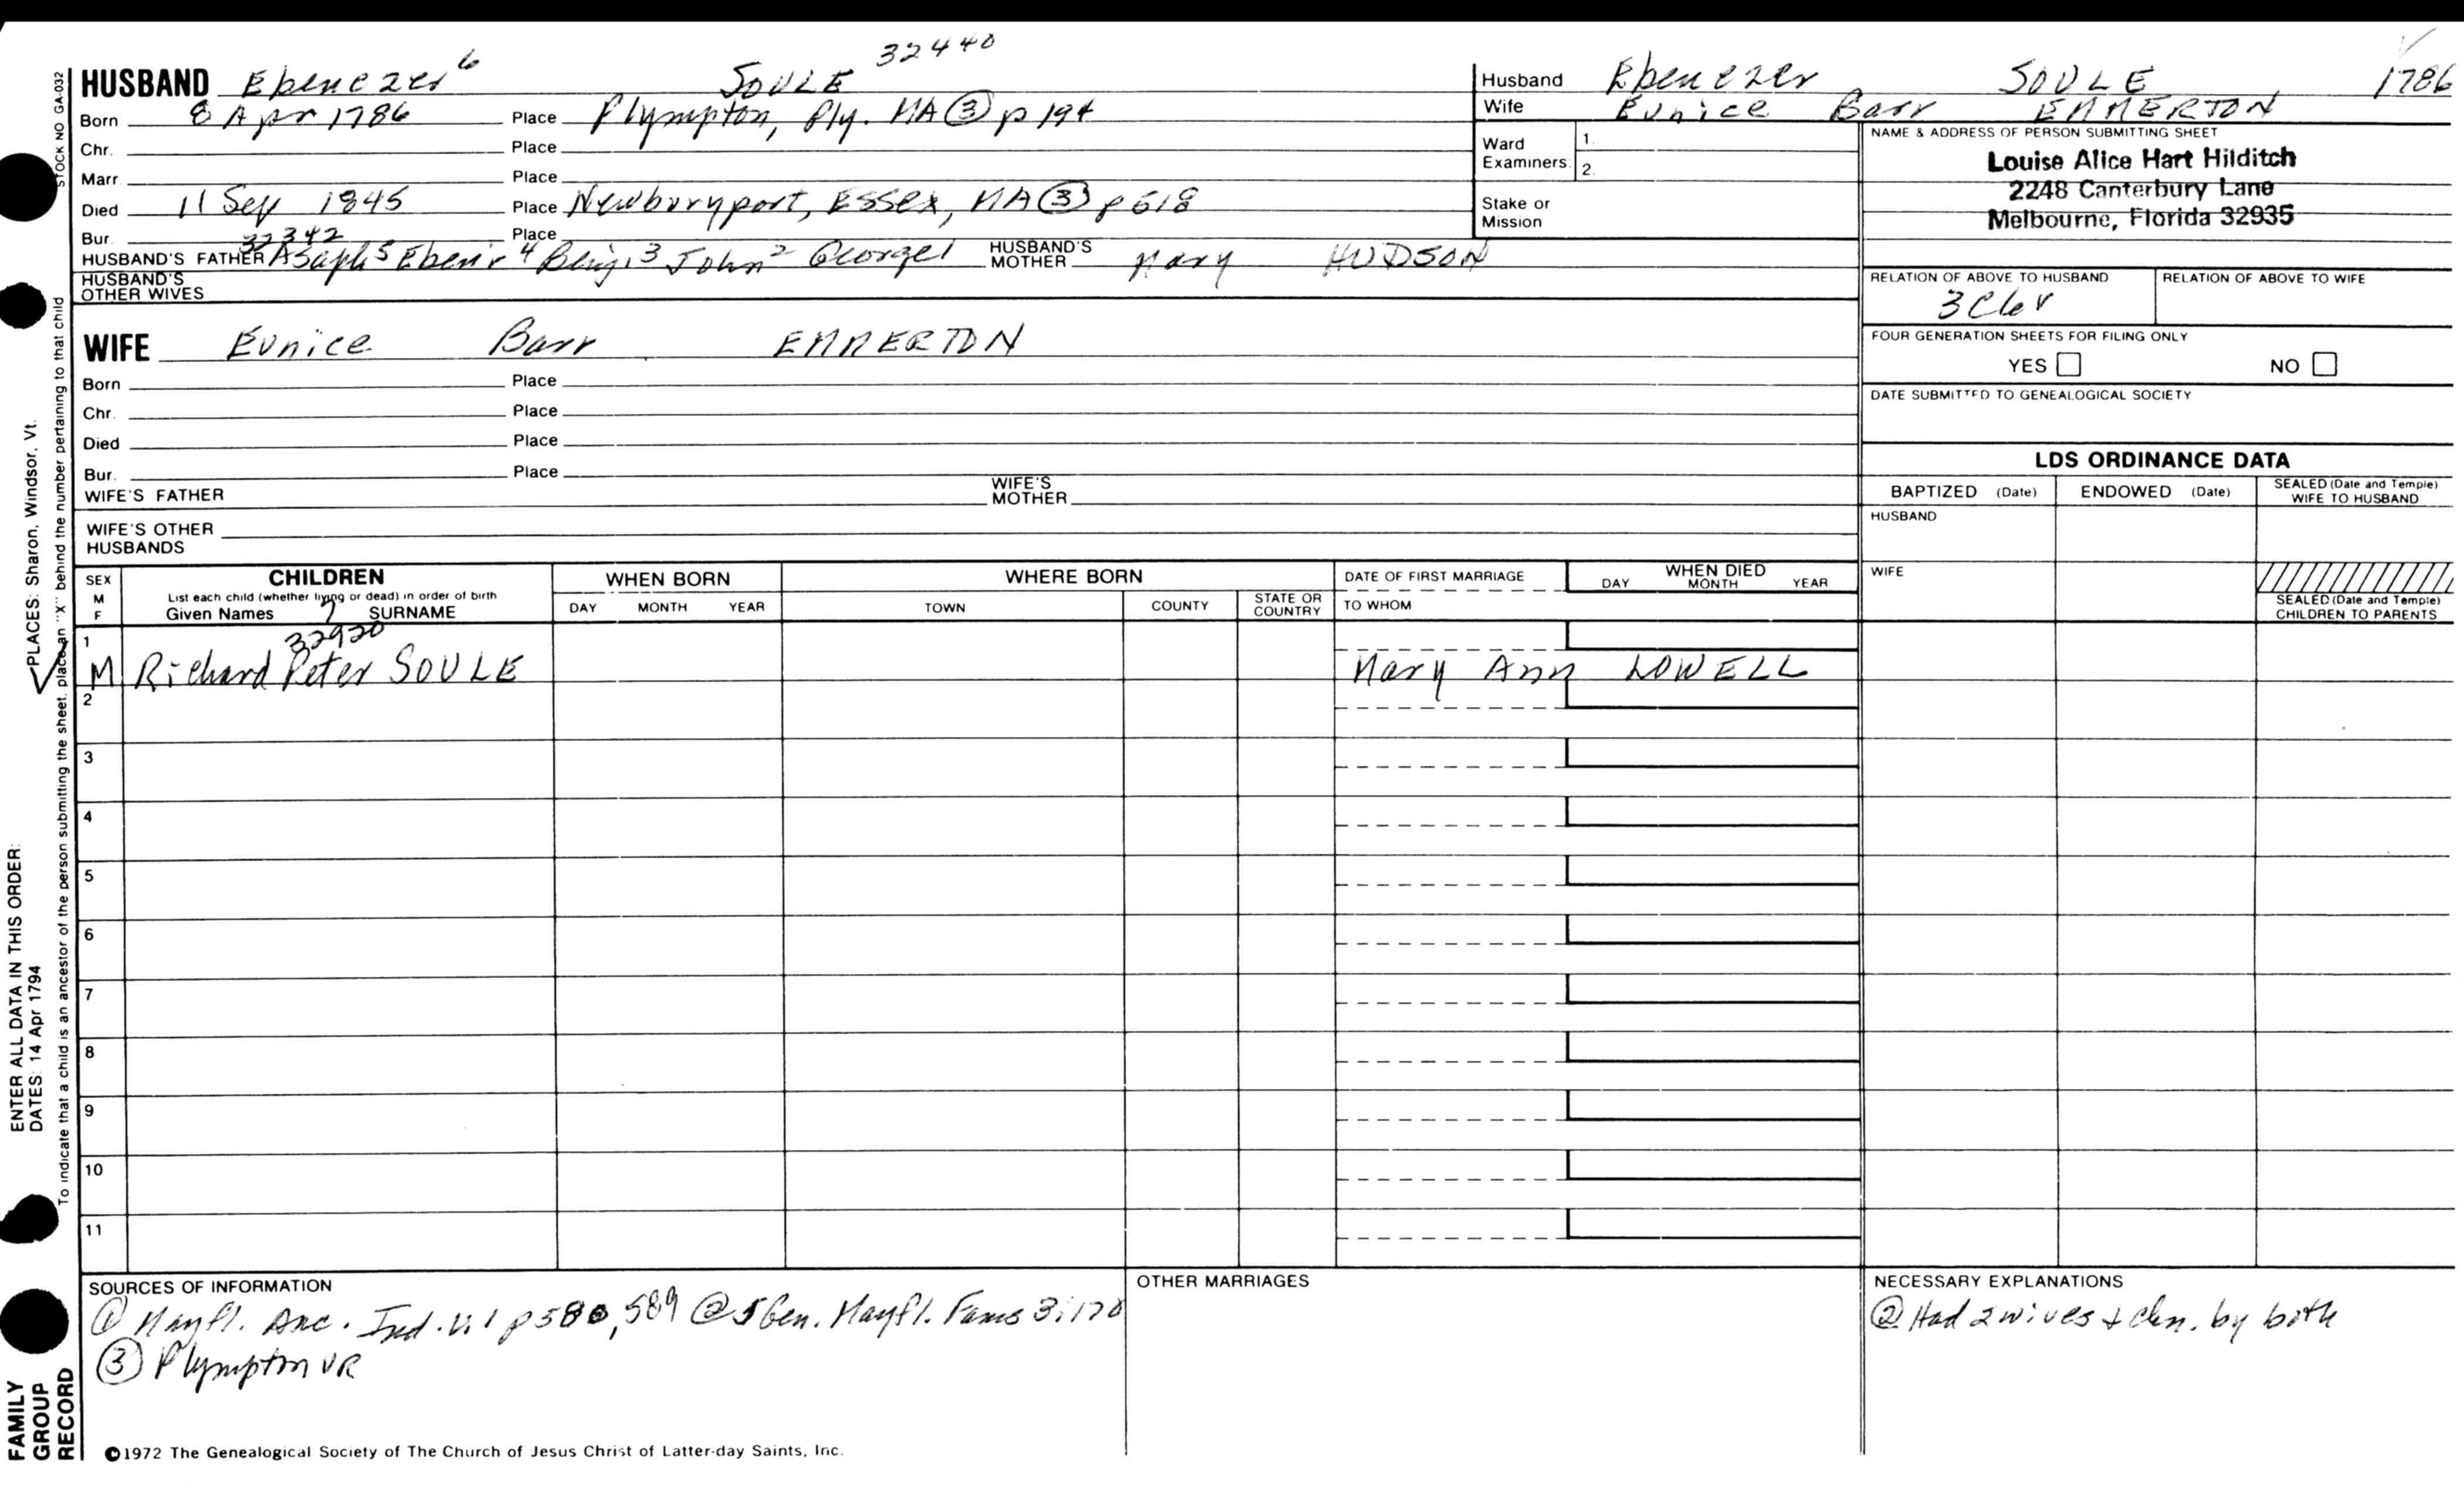 32440
HUSBAND Ebenezer 6 SOULE
Born 8 Apr 1786 Place Plympton, Ply. MA ③ p 194
Chr. Place
Marr. Place
Died 11 Sep 1845 Place Newburyport, Essex, MA ③ p 618
Bur. Place
32342
HUSBAND'S FATHER Asaph 5 Eben'r 4 Benj. 3 John 2 George 1 HUSBAND'S MOTHER Mary HUDSON
HUSBAND'S OTHER WIVES
WIFE Eunice Barr EMMERTON
Born Place
Chr. Place
Died Place
Bur. Place
WIFE'S FATHER WIFE'S MOTHER
WIFE'S OTHER HUSBANDS
Husband Ebenezer SOULE 1786
Wife Eunice Barr EMMERTON
Ward Examiners: 1. 2.
Stake or Mission
NAME & ADDRESS OF PERSON SUBMITTING SHEET
Louise Alice Hart Hilditch
2248 Canterbury Lane
Melbourne, Florida 32935
RELATION OF ABOVE TO HUSBAND RELATION OF ABOVE TO WIFE
FOUR GENERATION SHEETS FOR FILING ONLY
YES NO
DATE SUBMITTED TO GENEALOGICAL SOCIETY
LDS ORDINANCE DATA
BAPTIZED (Date) ENDOWED (Date) SEALED (Date and Temple) WIFE TO HUSBAND
HUSBAND
WIFE
SEALED (Date and Temple) CHILDREN TO PARENTS
SEX M F
CHILDREN
List each child (whether living or dead) in order of birth
Given Names 7 SURNAME
WHEN BORN
DAY MONTH YEAR
WHERE BORN
TOWN COUNTY STATE OR COUNTRY
DATE OF FIRST MARRIAGE
TO WHOM
WHEN DIED
DAY MONTH YEAR
1
32920
M Richard Peter SOULE Mary Ann LOWELL
2
3
4
5
6
7
8
9
10
11
SOURCES OF INFORMATION
① Mayfl. Anc. Ind. V.1 p 580, 589 ② 5 Gen. Mayfl. Fams 3:178
③ Plympton VR
OTHER MARRIAGES
NECESSARY EXPLANATIONS
② Had 2 wives + chn. by both
©1972 The Genealogical Society of The Church of Jesus Christ of Latter-day Saints, Inc.
STOCK NO GA-032
To indicate that a child is an ancestor of the person submitting the sheet, place an "X" behind the number pertaining to that child
PLACES: Sharon, Windsor, Vt.
ENTER ALL DATA IN THIS ORDER:
DATES: 14 Apr 1794
FAMILY
GROUP
RECORD